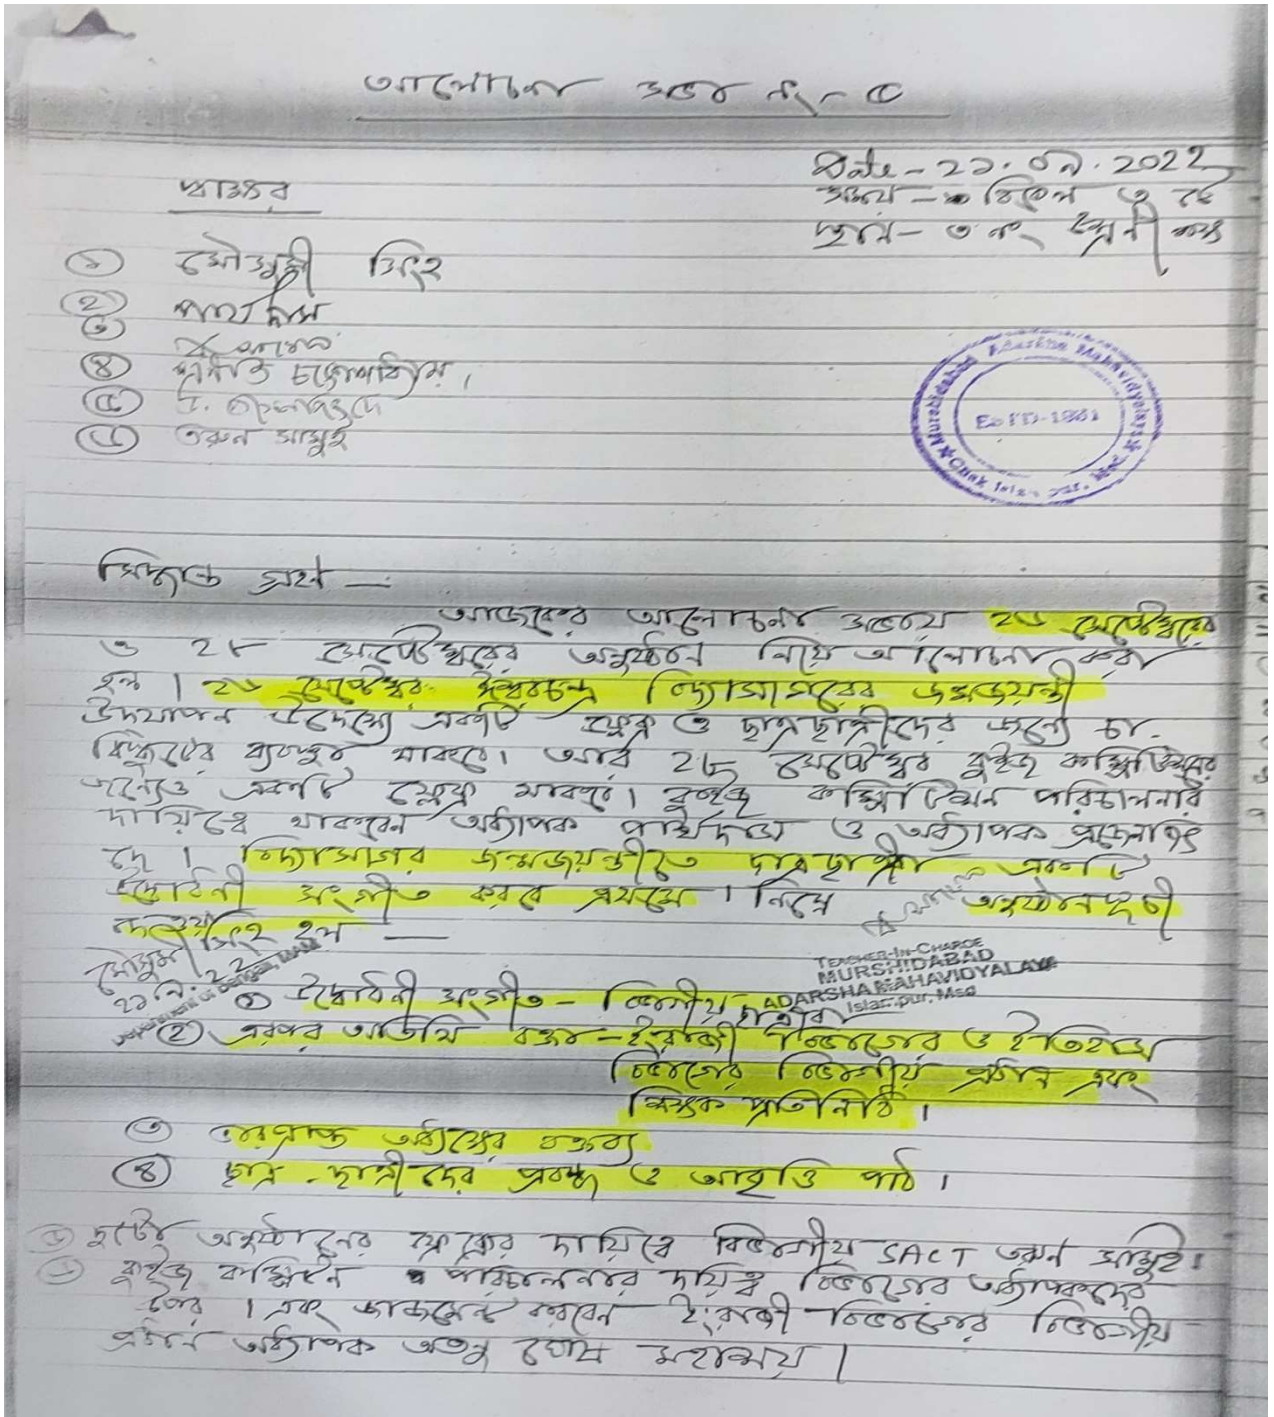 আলোচনা সভা নং - ৫
Date - ২১.০৯.2022
সময় - বিকেল ৩ টে
স্থান - ৩ নং শ্রেণী কক্ষ
স্বাক্ষর
① মৌসুমী সিংহ
② পার্থ দাস
③
④ চট্টোপাধ্যায়।
⑤
⑥ তরুন সামুই
Murshidabad Adarsha Mahavidyalaya
Estd-1981
সিদ্ধান্ত গ্রহণ —
আজকের আলোচনা সভায় ২৬ সেপ্টেম্বর
ও ২৮ সেপ্টেম্বরের অনুষ্ঠান নিয়ে আলোচনা করা
হল। ২৬ সেপ্টেম্বর ঈশ্বরচন্দ্র বিদ্যাসাগরের জন্মজয়ন্তী
উদযাপন উদ্দেশ্যে একটি ফ্লেক্স ও ছাত্রছাত্রীদের জন্যে চা-
বিস্কুটের ব্যবস্থা থাকবে। আর ২৮ সেপ্টেম্বর কুইজ কম্পিটিশনের
জন্যেও একটি ফ্লেক্স থাকবে। কুইজ কম্পিটিশন পরিচালনার
দায়িত্বে থাকবেন অধ্যাপক পার্থ দাস ও অধ্যাপক প্রসেনজিৎ
দে। বিদ্যাসাগর জন্মজয়ন্তীতে ছাত্রছাত্রী একটি
উদ্বোধনী সংগীত করবে প্রথমে। নিম্নে অনুষ্ঠানসূচী
দেওয়া হল —
মৌসুমী সিংহ
২১.৯.২২
TEACHER-IN-CHARGE
MURSHIDABAD
ADARSHA MAHAVIDYALAYA
Islampur, Msd
① উদ্বোধনী সংগীত - বিভাগীয় ছাত্রীরা
② এরপর অতিথি বক্তা - ইংরাজী বিভাগের ও ইতিহাস
বিভাগের বিভাগীয় প্রধান এবং
শিক্ষক প্রতিনিধি।
③ ভারপ্রাপ্ত অধ্যক্ষের বক্তব্য
④ ছাত্র-ছাত্রীদের প্রবন্ধ ও আবৃত্তি পাঠ।
⑤ দুটো অনুষ্ঠানের ফ্লেক্সের দায়িত্বে বিভাগীয় SACT তরুন সামুই।
⑥ কুইজ কম্পিটিশন পরিচালনার দায়িত্ব বিভাগের অধ্যাপকদের
উপর। এবং জাজমেন্ট করবেন ইংরাজী বিভাগের বিভাগীয়
প্রধান অধ্যাপক অতনু ঘোষ মহাশয়।